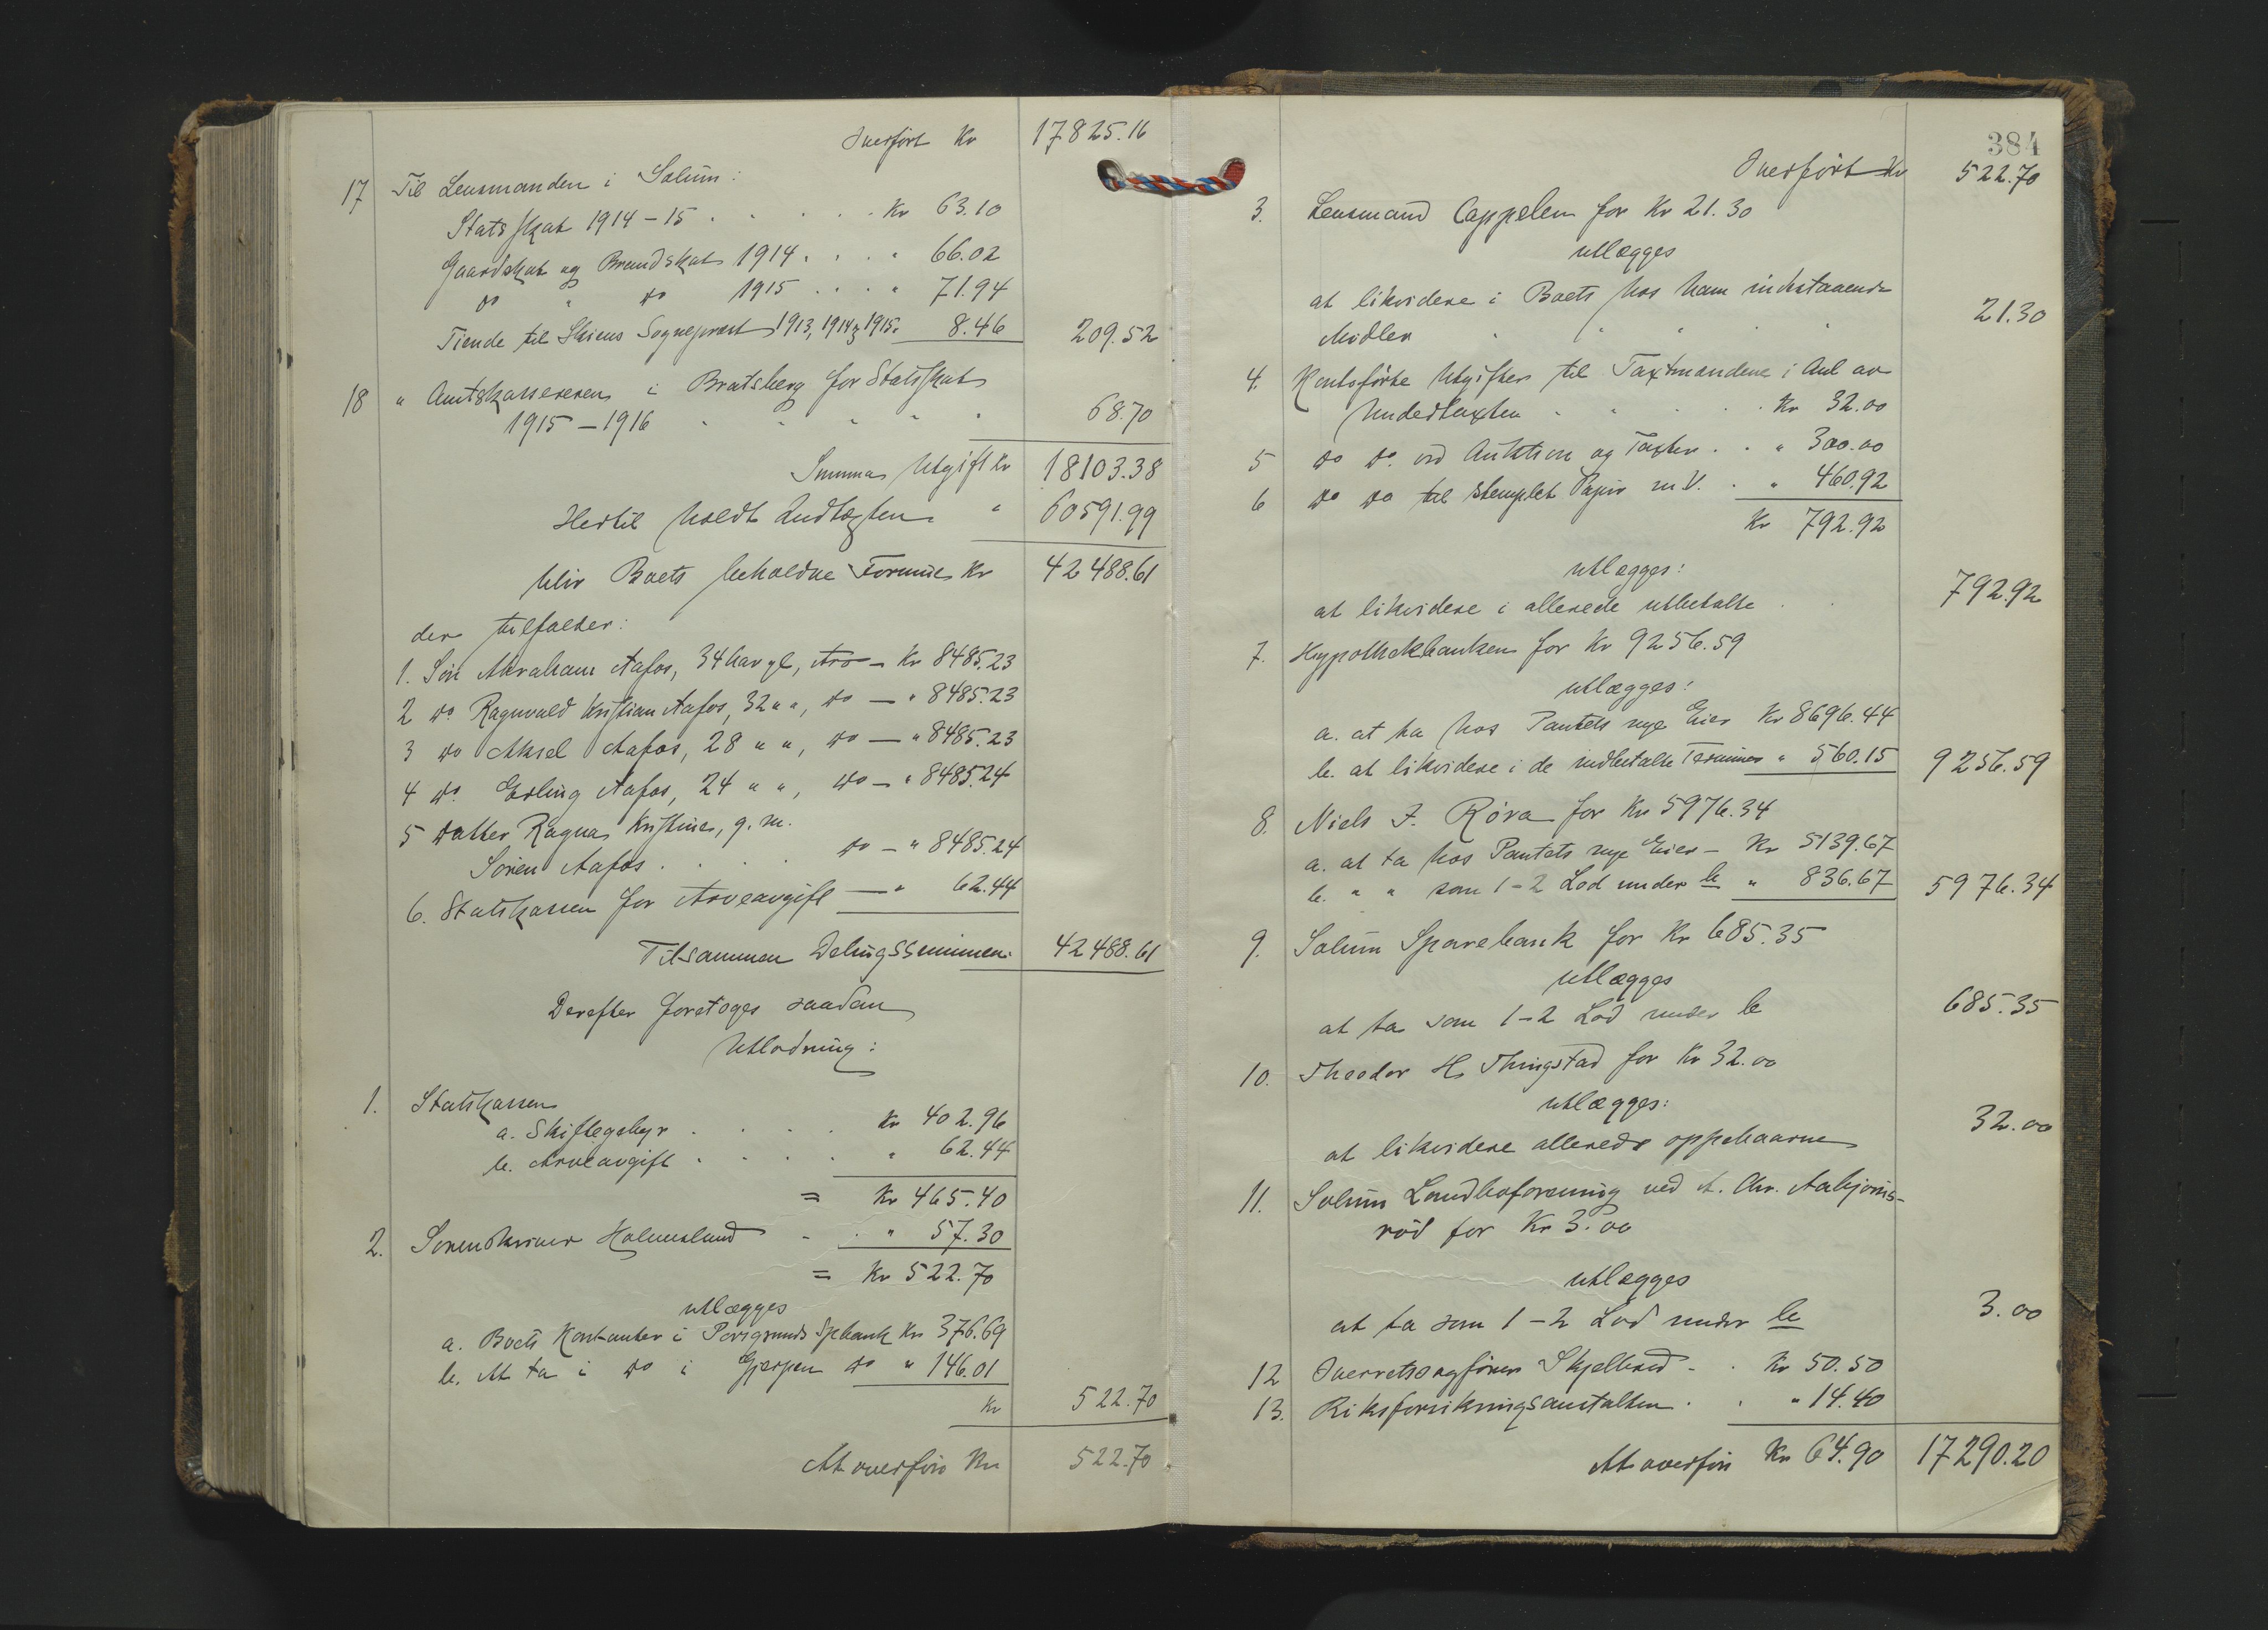 Overført Kr 17825.16
17 Til Lensmanden i Solum:
Statsskat 1914-15 . . . . . Kr 63.10
Gaardskat og Brandskat 1914 . . . " 66.02
do " do 1915 . . . . " 71.94
Tiende til Skiens Sogneprest 1913, 1914 & 1915 " 8.46 209.52
18 " Amtskassereren i Bratsberg for Statsskat
1915-1916 " " " " " 68.70
Summa Utgift Kr 18103.38
Hertil holdt Indtægten " 60591.99
bliir Boets beholdne Formue Kr 42488.61
der tilfalder:
1. Søn Abraham Aafos, 34 aar gl, Arv - Kr 8485.23
2 do Ragnvald Kristian Aafos, 32 " ", do - " 8485.23
3 do Aksel Aafos, 28 " ", do - " 8485.23
4 do Erling Aafos, 24 " ", do - " 8485.24
5 Datter Ragna Kristine, g. m.
Søren Aafos . . . . do - " 8485.24
6. Statskassen for Arveavgift - " 62.44
Tilsammen Delingssummen 42488.61
Derefter foretoges saadan
Utlodning:
1. Statskassen
a. Skiftegebyr . . . . Kr 402.96
b. Arveavgift . . . . " 62.44
= Kr 465.40
2. Sorenskriver Holmelund - . " 57.30
= Kr 522.70
utlægges
a. Boets Kontanter i Porsgrunds Spbank Kr 376.69
b. At ta i do i Gjerpen do " 146.01
Kr 522.70
At overføre Kr 522.70
384
Overført Kr 522.70
3. Lensmand Cappelen for Kr 21.30
utlægges
at likvidere i Boets hos ham indestaaende
Midler " " " " 21.30
4. Kontoførte Utgifter til Taxtmændene i Anl av
Undertaxten . . . . Kr 32.00
5 do do. ved Auktion og Taxter . . " 300.00
6 do do til stemplet Papir m.V. . " 460.92
Kr 792.92
utlægges:
at likvidere i allerede utbetalte . . 792.92
7. Hypothekbanken for Kr 9256.59
utlægges:
a. at ta hos Pantets nye Eier Kr 8696.44
b. at likvidere i de indbetalte Terminer " 560.15 9256.59
8. Niels J. Røra for Kr 5976.34
a. at ta hos Pantets nye Eier - Kr 5139.67
b. " " som 1-2 Lod under b " 836.67 5976.34
9. Solum Sparebank for Kr 685.35
utlægges
at ta som 1-2 Lod under b 685.35
10. Theodor H. Thingstad for Kr 32.00
utlægges:
at likvidere allerede oppebaarne 32.00
11. Solum Landboforening ved A. Chr. Aabjørns-
rød for Kr 3.00
utlægges
at ta som 1-2 Lod under b 3.00
12 Overretssagfører Skjelbred - . Kr 50.50
13. Riksforsikringsanstalten . . " 14.40
At overføre Kr 64.90 17290.20